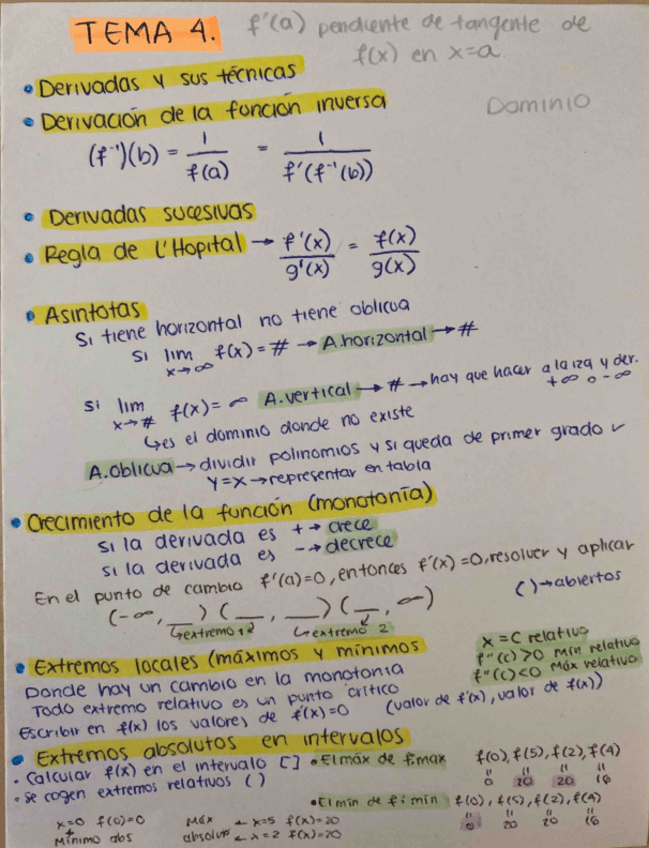 TEMA 4.
f'(a) pendiente de tangente de
f(x) en x=a
• Derivadas y sus técnicas
• Derivación de la función inversa
DOMINIO
(f⁻¹)(b) = 1/f(a) = 1/f'(f⁻¹(b))
• Derivadas sucesivas
• Regla de L'Hopital → f'(x)/g'(x) = f(x)/g(x)
• Asíntotas
Si tiene horizontal no tiene oblicua
Si lim x→∞ f(x) = # → A.horizontal → #
Si lim x→# f(x) = ∞ A.vertical → # → hay que hacer a la izq y der.
+∞ o -∞
↳ es el dominio donde no existe
A.Oblicua → dividir polinomios y si queda de primer grado ✓
y=x → representar en tabla
• Crecimiento de la función (monotonía)
si la derivada es + → crece
si la derivada es - → decrece
En el punto de cambio f'(a)=0, entonces f'(x)=0, resolver y aplicar
(-∞, __) (__, __) (__, ∞)
( ) → abiertos
↳ extremo 1 ↳ extremo 2
• Extremos locales (máximos y mínimos
x = c relativo
f''(c)>0 mín relativo
f''(c)<0 Máx relativo
Donde hay un cambio en la monotonía
Todo extremo relativo es un punto crítico
Escribir en f(x) los valores de f'(x)=0 (valor de f'(x), valor de f(x))
• Extremos absolutos en intervalos
• Calcular f(x) en el intervalo [ ] • El máx de f: max f(0), f(5), f(2), f(4)
" " " "
0 20 20 16
• se cogen extremos relativos ( )
• El mín de f: mín f(0), f(5), f(2), f(4)
" " " "
0 20 20 16
x=0 f(0)=0 Máx ← x=5 f(x)=20
Mínimo abs absoluto ← x=2 f(x)=20